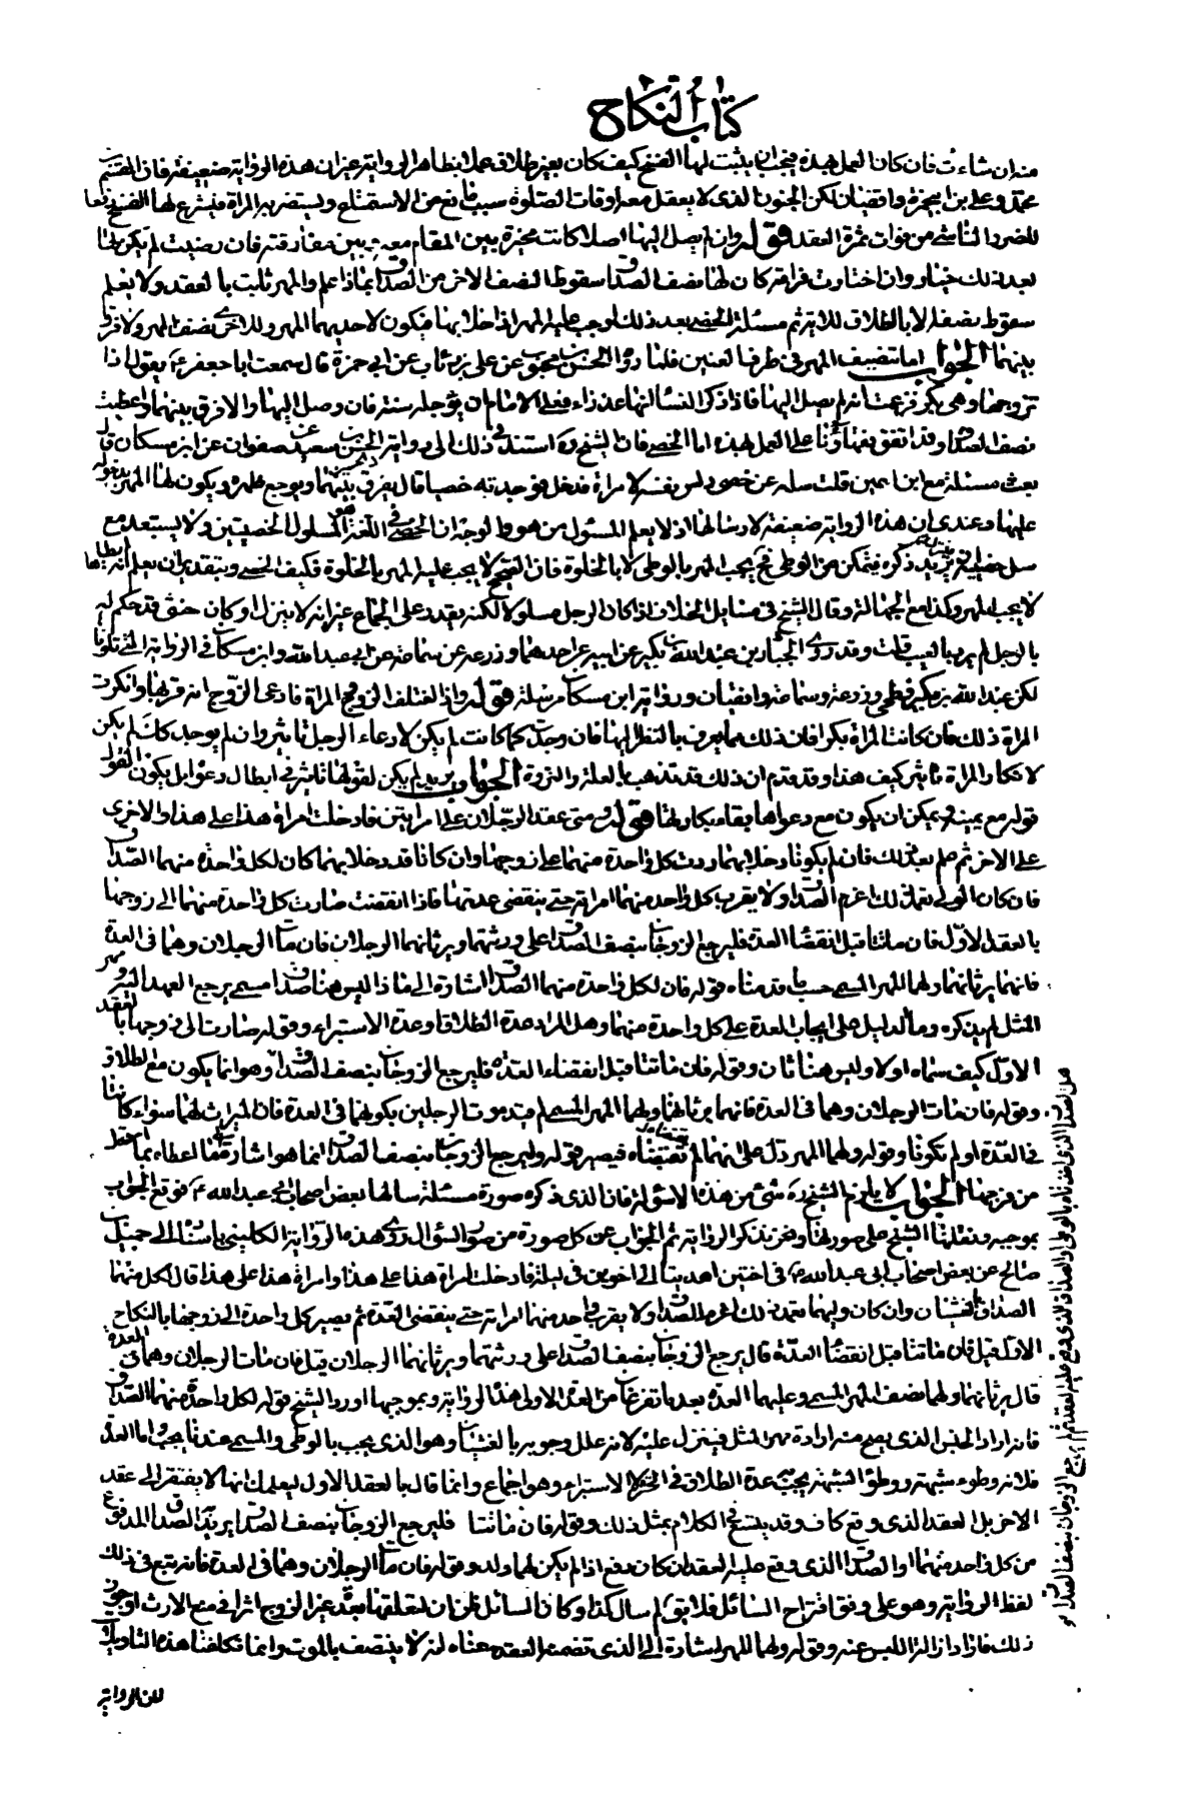 كتاب النكاح
منه ان شاءت فان كان العمل بهذه فيجب ان يثبت لها الفسخ كيف كان بغير طلاق عملا بظاهر الرواية غير ان هذه الرواية ضعيفة فان القسم بن
محمد وعلي بن ابي حمزة واقفيان لكن الجنون الذي لا يعقل معه اوقات الصلوة سبب مانع من الاستمتاع ويستضر به المراة فيشرع لها الفسخ دفعا
للضرر الناشي من فوات ثمرة العقد قوله وان لم يصل اليها اصلا كانت مخيرة بين المقام معه وبين مفارقته فان رضيت لم يكن لها
بعد ذلك خيار وان اختارت فراقه كان لها نصف الصداق سقوط النصف الاخر من الصداق بماذا علم والمهر ثابت بالعقد ولا يعلم
سقوط نصفه الا بالطلاق للاية ثم مسئلة الخصي بعد ذلك اوجب عليه المهر اذا خلا بها فيكون لاحديهما المهر وللاخرى نصف المهر ولا فرق
بينهما الجواب اما تنصيف المهر في طرف العنين فلما رواه الحسن بن محبوب عن علي بن رئاب عن ابي حمزة قال سمعت ابا جعفر ع يقول اذا
تزوجها وهي بكر فزعمت انه لم يصل اليها فاذا ذكرت انها عذراء فعلى الامام ان يؤجله سنة فان وصل اليها والا فرق بينهما واعطيت
نصف الصداق وقد اتفق فقهاؤنا على العمل بهذه اما الخصي فان الشيخ ره استند في ذلك الى رواية الحسن بن سعيد عن صفوان عن ابن مسكان قال
بعثت مسئلة مع ابن اعين قلت سله عن خصي دلس نفسه لامراة فدخل فوجدته خصيا قال يفرق بينهما ويوجع ظهره ويكون لها المهر بدخوله
عليها وعندي ان هذه الرواية ضعيفة لارسالها اذ لا يعلم المسئول من هو والوجه ان الخصي في اللغة هو المسلول الخصيتين ولا يستبعد مع
سل خصيتيه ذكره فيتمكن من الوطي فح يجب المهر بالوطي لا بالخلوة فان الصحيح لا يجب عليه المهر بالخلوة فكيف الخصي وبتقدير ان يعلم انه يطاها
لا يجب المهر وكذا مع الجهالة وقال الشيخ في مسايل الخلاف اذا كان الرجل مسلولا لكنه يقدر على الجماع غير انه لا ينزل او كان خنثى قد حكم له
بالرجل لم يرد بالعيب قلت وقد روى الخبار بن عبد الله بن بكير عن ابيه عن احدهما وزرعة عن سماعة عن ابي عبد الله وابن مسكان في الرواية التي تلوناها
لكن عبد الله بن بكير فطحي وزرعة وسماعة واقفيان ورواية ابن مسكان مرسلة قوله واذا اختلف الزوج والمراة فادعى الزوج انه قربها وانكرت
المراة ذلك فان كانت المراة بكرا فان ذلك مما يعرف بالنظر اليها فان وجدت كما كانت لم يكن لادعاء الرجل تاثير وان لم يوجد كانت لم يكن
لانكار المراة تاثير كيف هذا وقد تقدم ان ذلك قد تذهب بالعلة والنزوة الجواب يريد لم يكن لقولها تاثير في ابطال دعواه بل يكون القول
قوله مع يمينه ويمكن ان يكون مع دعواها بقاء بكارتها قوله ومتى عقد الرجلان على امراتين فادخلت امراة هذا على هذا والاخرى
على الاخر ثم علم بعد ذلك فان لم يكونا دخلا بهما ردت كل واحدة منهما على زوجها وان كانا قد دخلا بهما كان لكل واحدة منهما الصداق
فان كان الولي تعمد ذلك اغرم الصداق ولا يقرب كل واحد منهما امراته حتى ينقضي عدتها فاذا انقضت صارت كل واحدة منهما الى زوجها
بالعقد الاول فان ماتتا قبل انقضاء العدة فليرجع الزوجان بنصف الصداق على ورثتهما ويرثانهما الرجلان فان مات الرجلان وهما في العدة
فانهما يرثانهما ولهما المهر المسمى حسب ما قدمناه قوله فان لكل واحدة منهما الصداق اشارة الى ماذا اليس هنا صداق مسمى يرجع العهد اليه ومهر
المثل لم يذكره وما الدليل على ايجاب العدة على كل واحدة منهما وهل المراد عدة الطلاق او عدة الاستبراء وقوله صارت الى زوجها بالعقد
الاول كيف سماه اولا وليس هنا ثان وقوله فان ماتتا قبل انقضاء العدة فليرجع الزوجان بنصف الصداق وهو انما يكون مع الطلاق
وقوله فان مات الرجلان وهما في العدة فانهما يرثانهما ولهما المهر المسمى لم قيد موت الرجلين بكونهما في العدة فان الميراث لهما سواء كانتا
في العدة او لم تكونا وقوله ولهما المهر دل على انهما لم تقبضاه فيصير قوله وليرجع الزوجان بنصف الصداق انما هو اشارة الى اعطاء ما حصل
من فرجها الجواب لا يلزم الشيخ ره شئ من هذه الاسؤلة فان الذي ذكره صورة مسئلة سالها بعض اصحاب ابي عبد الله ع فوقع الجواب
بموجبه ونقلها الشيخ على صورتها ونحن نذكر الرواية ثم الجواب عن كل صورة من صور السؤال روى هذه الرواية الكليني باسناده الى جميل بن
صالح عن بعض اصحاب ابي عبد الله ع في اختين اهديتا الى اخوين في ليلة فادخلت امراة هذا على هذا وامراة هذا على هذا قال لكل منهما
الصداق بالغشيان وان كان وليهما تعمد ذلك اغرم الصداق ولا يقرب واحد منهما امراته حتى ينقضي العدة ثم يصير كل واحدة الى زوجها بالنكاح
الاول قيل فان ماتتا قبل انقضاء العدة قال يرجع الزوجان بنصف الصداق على ورثتهما ويرثانهما الرجلان قيل فان مات الرجلان وهما في العدة
قال يرثانهما ولهما نصف المهر المسمى وعليهما العدة بعد ما تفرغان من العدة الاولى فهذا الرواية وبموجبها اورد الشيخ قوله لكل واحدة منهما الصداق
فانه اراد الجنس الذي يصح منه ارادة مهر المثل فينزل عليه لانه علل وجوبه بالغشيان وهو الذي يجب بالوطي والمسمى عندنا يجب اما العدة
فلانه وطوء شبهة ووطؤ الشبهة يجب عدة الطلاق في الحرة لا الاستبراء وهو اجماع وانما قال بالعقد الاول ليعلمك انها لا يفتقر الى عقد
الاخر بل العقد الذي وقع كاف وقد يتسع في الكلام بمثل ذلك وقوله فان ماتتا فليرجع الزوجان بنصف الصداق يريد الصداق المدفوع
من كل واحد منهما او الصداق الذي وقع عليه العقد ان كان دفع اذا لم يكن لهما ولد وقوله فان مات الرجلان وهما في العدة فانه يتبع في ذلك
لفظ الرواية وهو على وفق اقتراح السائل فلا يقل لم سال كذا وكان السائل ظن ان لتعلقها بعدة غير الزوج اثرا في منع الارث او تجوز
ذلك فاذا زال اللبس عنه وقوله ولهما المهر اشارة الى الذي تضمنه العقد معناه انه لا يتنصف بالموت وانما تكلفنا هذه التاويلات
لان الرواية
هل الصداق الذي اخذتاه بالوطي او الصداق الذي وقع عليه العقد ثم لم يرجع الزوجان بنصف الصداق